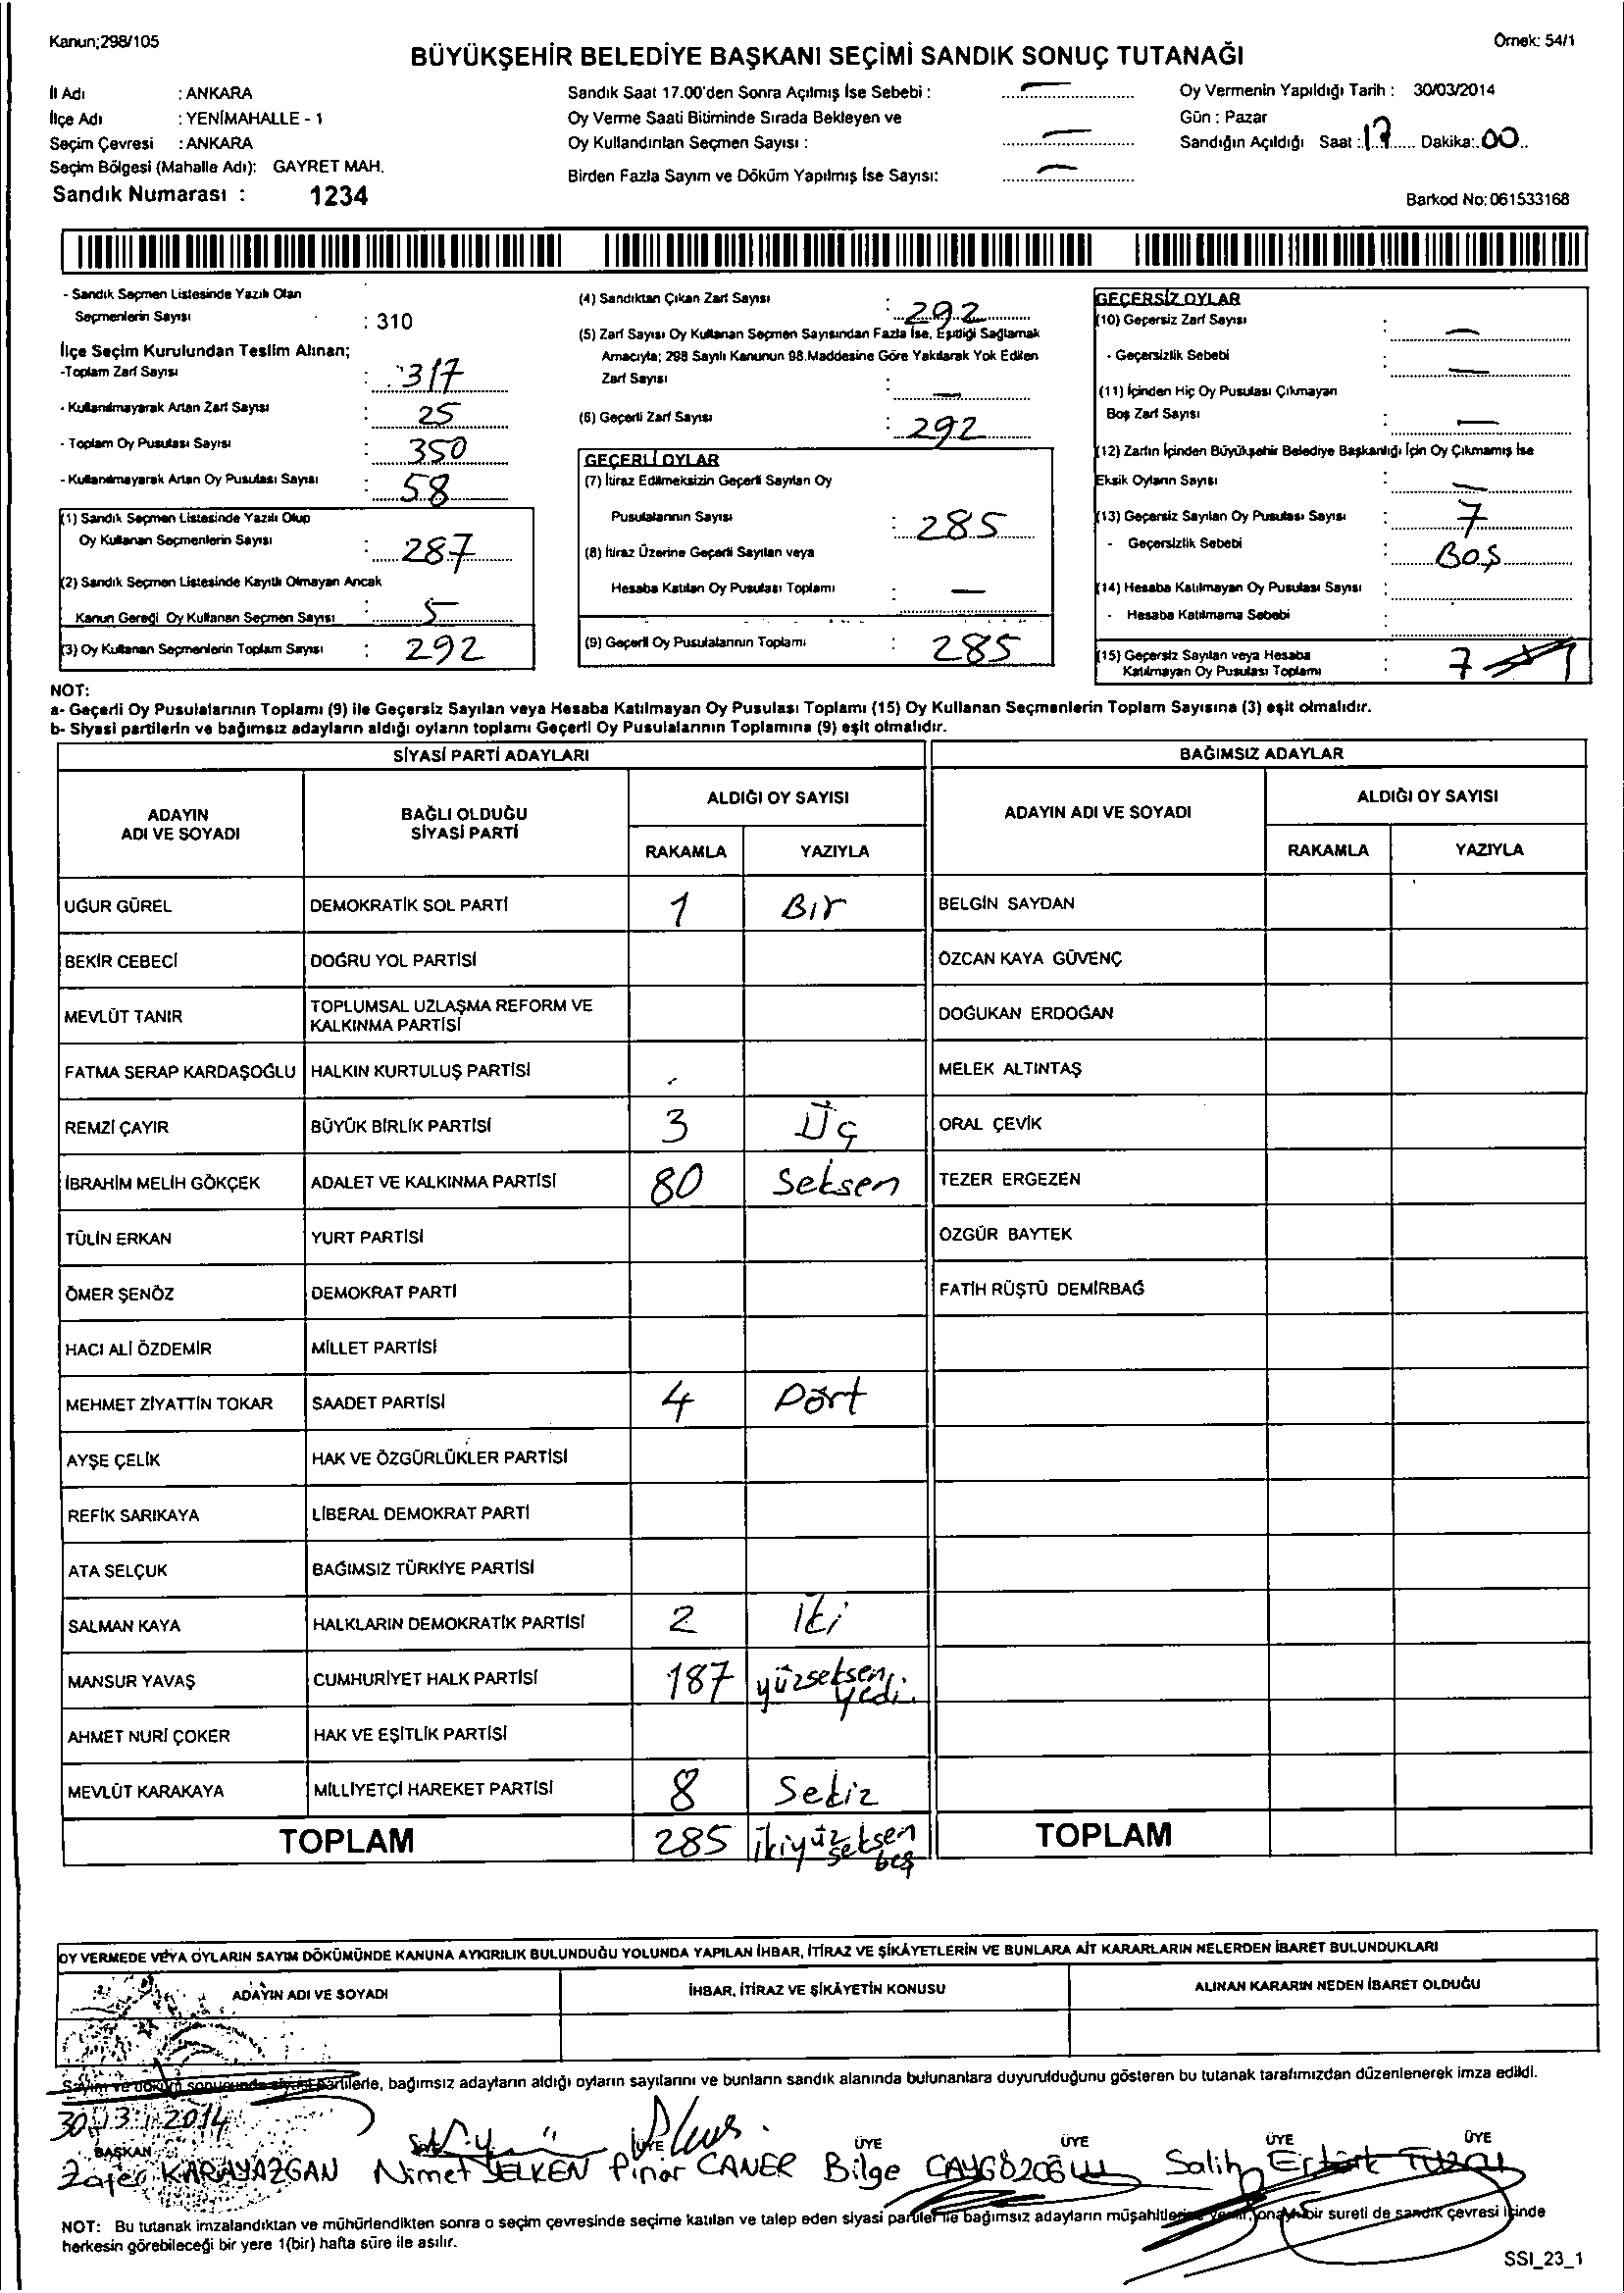 Kanun;298/105
Örnek: 54/1
BÜYÜKŞEHİR BELEDİYE BAŞKANI SEÇİMİ SANDIK SONUÇ TUTANAĞI
İl Adı : ANKARA
İlçe Adı : YENİMAHALLE - 1
Seçim Çevresi : ANKARA
Seçim Bölgesi (Mahalle Adı): GAYRET MAH.
Sandık Numarası : 1234
Sandık Saat 17.00'den Sonra Açılmış İse Sebebi :
Oy Verme Saati Bitiminde Sırada Bekleyen ve
Oy Kullandırılan Seçmen Sayısı :
Birden Fazla Sayım ve Döküm Yapılmış İse Sayısı:
Oy Vermenin Yapıldığı Tarih : 30/03/2014
Gün : Pazar
Sandığın Açıldığı Saat : 17 Dakika: 00
Barkod No: 061533168
- Sandık Seçmen Listesinde Yazılı Olan
Seçmenlerin Sayısı : 310
İlçe Seçim Kurulundan Teslim Alınan;
-Toplam Zarf Sayısı : 317
- Kullanılmayarak Artan Zarf Sayısı : 25
- Toplam Oy Pusulası Sayısı : 350
- Kullanılmayarak Artan Oy Pusulası Sayısı : 58
(1) Sandık Seçmen Listesinde Yazılı Olup
Oy Kullanan Seçmenlerin Sayısı : 287
(2) Sandık Seçmen Listesinde Kayıtlı Olmayan Ancak
Kanun Gereği Oy Kullanan Seçmen Sayısı : 5
(3) Oy Kullanan Seçmenlerin Toplam Sayısı : 292
(4) Sandıktan Çıkan Zarf Sayısı : 292
(5) Zarf Sayısı Oy Kullanan Seçmen Sayısından Fazla İse, Eşitliği Sağlamak
Amacıyla; 298 Sayılı Kanunun 98.Maddesine Göre Yakılarak Yok Edilen
Zarf Sayısı : —
(6) Geçerli Zarf Sayısı : 292
GEÇERLİ OYLAR
(7) İtiraz Edilmeksizin Geçerli Sayılan Oy
Pusulalarının Sayısı : 285
(8) İtiraz Üzerine Geçerli Sayılan veya
Hesaba Katılan Oy Pusulası Toplamı : —
(9) Geçerli Oy Pusulalarının Toplamı : 285
GEÇERSİZ OYLAR
(10) Geçersiz Zarf Sayısı : —
- Geçersizlik Sebebi : —
(11) İçinden Hiç Oy Pusulası Çıkmayan
Boş Zarf Sayısı : —
(12) Zarfın İçinden Büyükşehir Belediye Başkanlığı İçin Oy Çıkmamış İse
Eksik Oyların Sayısı : —
(13) Geçersiz Sayılan Oy Pusulası Sayısı : 7
- Geçersizlik Sebebi : BOŞ
(14) Hesaba Katılmayan Oy Pusulası Sayısı :
- Hesaba Katılmama Sebebi :
(15) Geçersiz Sayılan veya Hesaba
Katılmayan Oy Pusulası Toplamı : 7
NOT:
a- Geçerli Oy Pusulalarının Toplamı (9) ile Geçersiz Sayılan veya Hesaba Katılmayan Oy Pusulası Toplamı (15) Oy Kullanan Seçmenlerin Toplam Sayısına (3) eşit olmalıdır.
b- Siyasi partilerin ve bağımsız adayların aldığı oyların toplamı Geçerli Oy Pusulalarının Toplamına (9) eşit olmalıdır.
SİYASİ PARTİ ADAYLARI
BAĞIMSIZ ADAYLAR
ADAYIN
ADI VE SOYADI
BAĞLI OLDUĞU
SİYASİ PARTİ
ALDIĞI OY SAYISI
RAKAMLA YAZIYLA
ADAYIN ADI VE SOYADI
ALDIĞI OY SAYISI
RAKAMLA YAZIYLA
UĞUR GÜREL DEMOKRATİK SOL PARTİ 1 Bir BELGİN SAYDAN
BEKİR CEBECİ DOĞRU YOL PARTİSİ ÖZCAN KAYA GÜVENÇ
MEVLÜT TANIR TOPLUMSAL UZLAŞMA REFORM VE
KALKINMA PARTİSİ DOĞUKAN ERDOĞAN
FATMA SERAP KARDAŞOĞLU HALKIN KURTULUŞ PARTİSİ MELEK ALTINTAŞ
REMZİ ÇAYIR BÜYÜK BİRLİK PARTİSİ 3 Üç ORAL ÇEVİK
İBRAHİM MELİH GÖKÇEK ADALET VE KALKINMA PARTİSİ 80 Seksen TEZER ERGEZEN
TÜLİN ERKAN YURT PARTİSİ ÖZGÜR BAYTEK
ÖMER ŞENÖZ DEMOKRAT PARTİ FATİH RÜŞTÜ DEMİRBAĞ
HACI ALİ ÖZDEMİR MİLLET PARTİSİ
MEHMET ZİYATTİN TOKAR SAADET PARTİSİ 4 Dört
AYŞE ÇELİK HAK VE ÖZGÜRLÜKLER PARTİSİ
REFİK SARIKAYA LİBERAL DEMOKRAT PARTİ
ATA SELÇUK BAĞIMSIZ TÜRKİYE PARTİSİ
SALMAN KAYA HALKLARIN DEMOKRATİK PARTİSİ 2 iki
MANSUR YAVAŞ CUMHURİYET HALK PARTİSİ 187 yüzseksen
yedi.
AHMET NURİ ÇOKER HAK VE EŞİTLİK PARTİSİ
MEVLÜT KARAKAYA MİLLİYETÇİ HAREKET PARTİSİ 8 Sekiz
TOPLAM 285 ikiyüz seksen
beş TOPLAM
OY VERMEDE VEYA OYLARIN SAYIM DÖKÜMÜNDE KANUNA AYKIRILIK BULUNDUĞU YOLUNDA YAPILAN İHBAR, İTİRAZ VE ŞİKÂYETLERİN VE BUNLARA AİT KARARLARIN NELERDEN İBARET BULUNDUKLARI
ADAYIN ADI VE SOYADI İHBAR, İTİRAZ VE ŞİKÂYETİN KONUSU ALINAN KARARIN NEDEN İBARET OLDUĞU
Sayım ve döküm sonucunda siyasi partilerle, bağımsız adayların aldığı oyların sayılarını ve bunların sandık alanında bulunanlara duyurulduğunu gösteren bu tutanak tarafımızdan düzenlenerek imza edildi.
30/3/2014
BAŞKAN ÜYE ÜYE ÜYE ÜYE ÜYE
Zafer KARAYAZGAN Nimet YELKEN Pınar CANER Bilge CAYGÖZOĞLU Salih Ertürk
NOT: Bu tutanak imzalandıktan ve mühürlendikten sonra o seçim çevresinde seçime katılan ve talep eden siyasi partiler ile bağımsız adayların müşahitlerine verilir, onaylı bir sureti de sandık çevresi içinde
herkesin görebileceği bir yere 1(bir) hafta süre ile asılır.
SSI_23_1